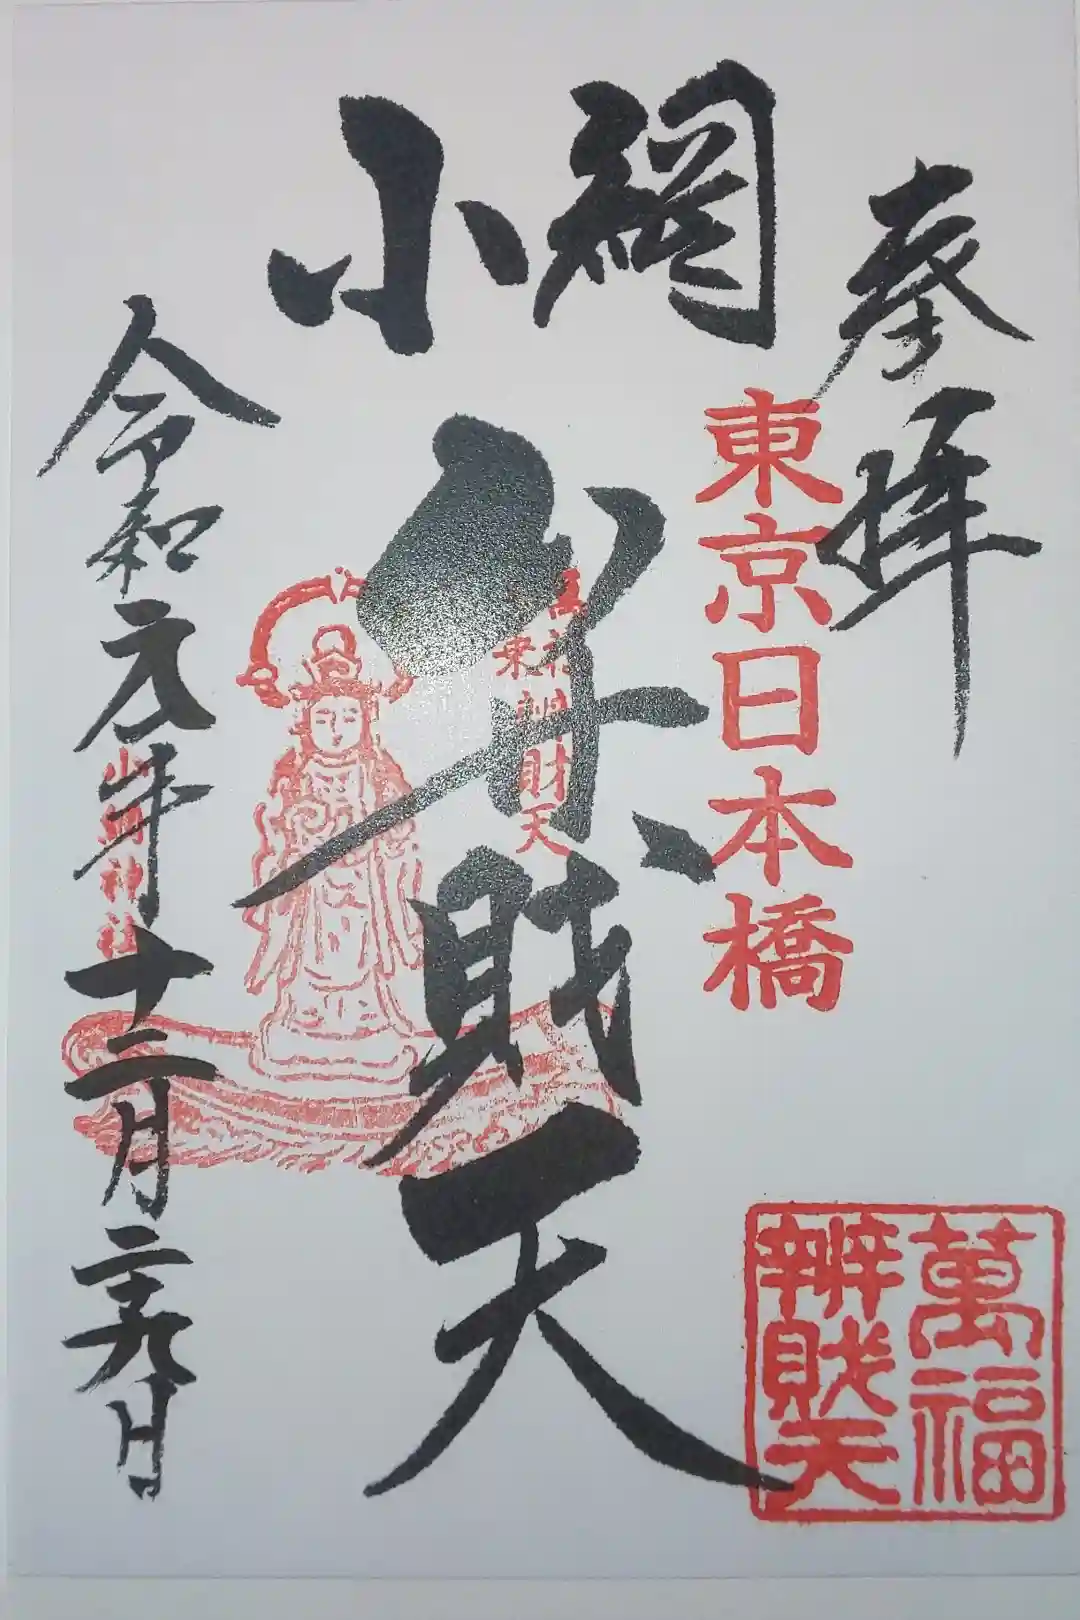 奉拝
東京日本橋
小網
弁財天
萬福
辨財天
萬福
辨財天
令和元年十二月二十九日
小網神社